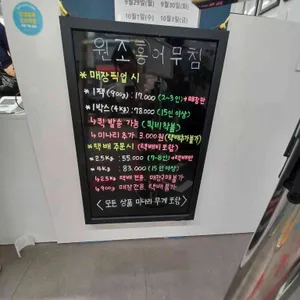 9월29일(월) 9월30일(화)
10월1일(수) 10월2일(목)
원조홍어무침
* 매장픽업 시
* 1팩(900g) : 17,000 (2~3인)
* 1박스(4kg) : 78,000 (15인 이상)
↳ 퀵 발송 가능 (퀵비착불)
↳ 미나리 추가 3,000원
* 택배 주문시 (택배비포함)
* 2.5kg : 55,000 (7~8인)
* 4kg : 83,000 (15인 이상)
↳ 2.5kg 택배전용, 매장구매불가
↳ 900g 매장전용, 택배불가
<모든 상품 미나리 무게 포함>